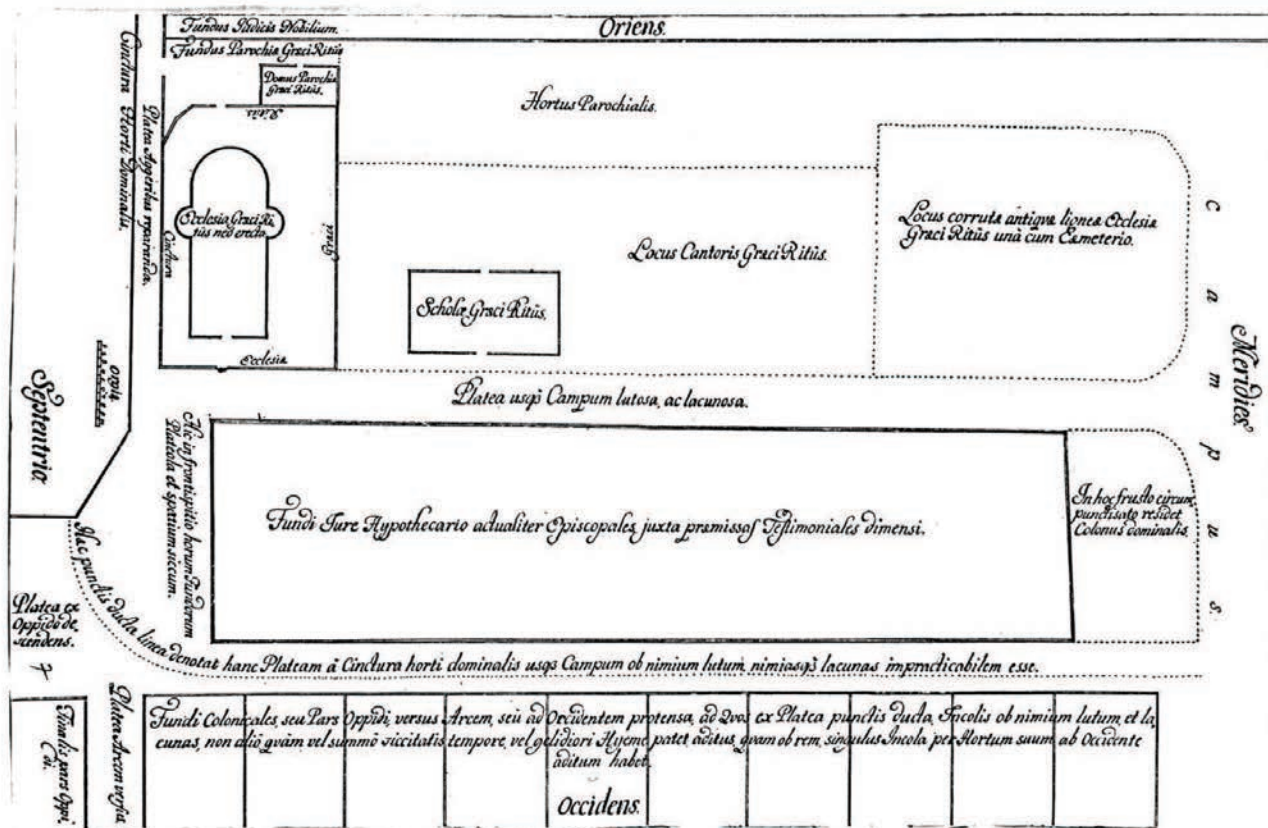 Oriens.
Fundus Judicis Nobilium.
Fundus Parochiæ Græci Ritûs
Domus Parochiæ
Græci Ritûs.
Hortus Parochialis.
Cinctura Horti Dominalis.
Platea Aggeribus reparanda.
Cinctura
Ecclesiæ
Græci
Ritûs
Ecclesia Græci Ri-
tûs neo erecta.
Locus Cantoris Græci Ritûs.
Schola Græci Ritûs.
Locus corrutæ antiquæ ligneæ Ecclesiæ
Græci Ritûs unà cum Cæmeterio.
Campus.
Meridies
Septentrio
Platea usq3 Campum lutosa, ac lacunosa.
Hic in frontispitio horum Fundorum
Plateola et spatium siccum.
Fundi Jure Hypothecario actualiter Episcopales, juxta præmissos Testimoniales dimensi.
In hoc frusto circum
punctisato residet
Colonus dominalis.
Hæc punctis ducta linea denotat hanc Plateam à Cinctura horti dominalis usq3 Campum ob nimium lutum, nimiasq3 lacunas impracticabilem esse.
Platea ex
Oppido de-
scendens.
Platea Arcem versus
Fundi Colonicales, seu Pars Oppidi, versus Arcem, seu ad Occidentem protensa, ad Quos ex Platea punctis ducta, Incolis ob nimium lutum, et la-
cunas, non aliò quàm vel summô siccitatis tempore, vel gelidiori Hyeme patet aditus, quam ob rem, singulus Incola per Hortum suum ab Occidente
aditum habet.
Occidens.
pars Oppi-
di.